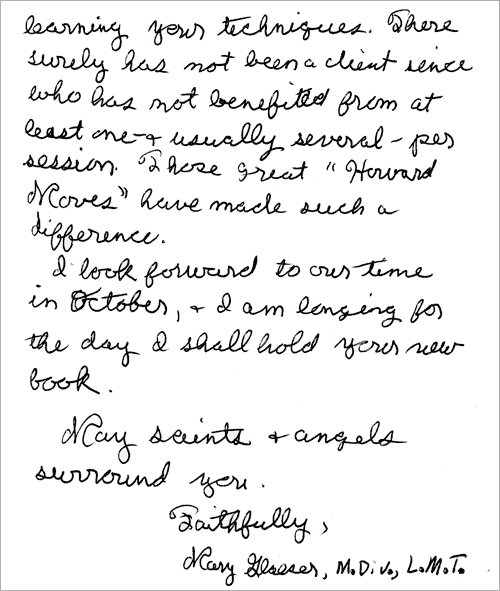 learning your techniques. There
surely has not been a client sence
who has not benefited from at
least one - & usually several - per
session. Those great "Howard
Moves" have made such a
difference.
I look forward to our time
in October, & I am longing for
the day I shall hold your new
book.
May saints & angels
surround you.
Faithfully,
Mary Glaeser, M.Div., L.M.T.